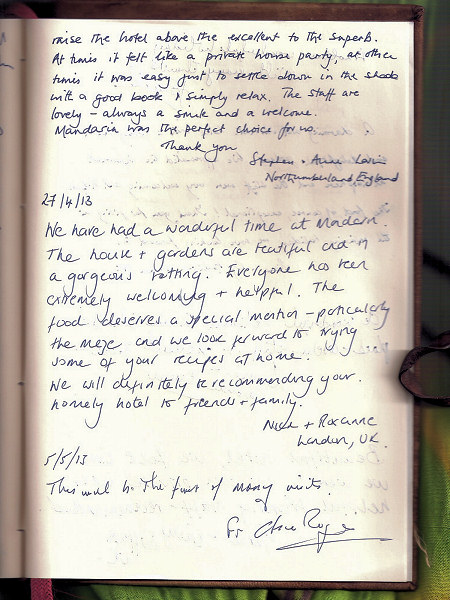 raise the hotel above the excellent to the superb.
At times it felt like a private house party, at other
times it was easy just to settle down in the shade
with a good book + simply relax. The staff are
lovely – always a smile and a welcome.
Mandarin was the perfect choice for us.
Thank you
Stephen + Anne
Northumberland England
27/4/13
We have had a wonderful time at
The house + gardens are beautiful and in
a gorgeous setting. Everyone has been
extremely welcoming + helpful. The
food deserves a special mention – particularly
the meze and we look forward to trying
some of your recipes at home.
We will definitely be recommending your
homely hotel to friends + family.
+ Roxanne
London, UK.
5/5/13
This will be the first of many visits.